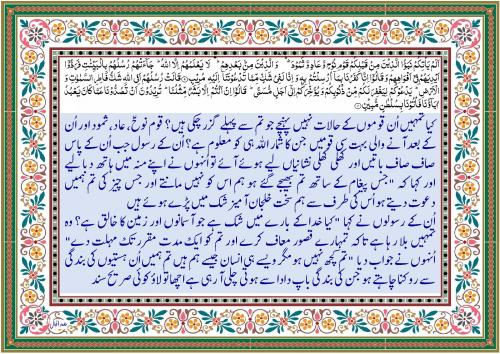 اَلَمْ يَاْتِكُمْ نَبَؤُا الَّذِيْنَ مِنْ قَبْلِكُمْ قَوْمِ نُوْحٍ وَّعَادٍ وَّثَمُوْدَ ۛ وَ الَّذِيْنَ مِنْۢ بَعْدِهِمْ ۛ لَا يَعْلَمُهُمْ اِلَّا اللّٰهُ ؕ جَآءَتْهُمْ رُسُلُهُمْ بِالْبَيِّنٰتِ فَرَدُّوْۤا
اَيْدِيَهُمْ فِيْۤ اَفْوَاهِهِمْ وَ قَالُوْۤا اِنَّا كَفَرْنَا بِمَاۤ اُرْسِلْتُمْ بِهٖ وَ اِنَّا لَفِيْ شَكٍّ مِّمَّا تَدْعُوْنَنَاۤ اِلَيْهِ مُرِيْبٍ قَالَتْ رُسُلُهُمْ اَفِي اللّٰهِ شَكٌّ فَاطِرِ السَّمٰوٰتِ وَ
الْاَرْضِ ؕ يَدْعُوْكُمْ لِيَغْفِرَ لَكُمْ مِّنْ ذُنُوْبِكُمْ وَ يُؤَخِّرَكُمْ اِلٰۤى اَجَلٍ مُّسَمًّى ؕ قَالُوْۤا اِنْ اَنْتُمْ اِلَّا بَشَرٌ مِّثْلُنَا ؕ تُرِيْدُوْنَ اَنْ تَصُدُّوْنَا عَمَّا كَانَ يَعْبُدُ
اٰبَآؤُنَا فَاْتُوْنَا بِسُلْطٰنٍ مُّبِيْنٍ
کیا تمہیں اُن قوموں کے حالات نہیں پہنچے جو تم سے پہلے گزر چکی ہیں؟ قوم نوحؑ، عاد، ثمود اور اُن
کے بعد آنے والی بہت سی قومیں جن کا شمار اللہ ہی کو معلوم ہے؟ اُن کے رسول جب اُن کے پاس
صاف صاف باتیں اور کھلی کھلی نشانیاں لیے ہوئے آئے تو اُنہوں نے اپنے منہ میں ہاتھ دبا لیے
اور کہا کہ "جس پیغام کے ساتھ تم بھیجے گئے ہو ہم اس کو نہیں مانتے اور جس چیز کی تم ہمیں
دعوت دیتے ہو اُس کی طرف سے ہم سخت خلجان آمیز شک میں پڑے ہوئے ہیں
اُن کے رسولوں نے کہا "کیا خدا کے بارے میں شک ہے جو آسمانوں اور زمین کا خالق ہے؟ وہ
تمہیں بلا رہا ہے تاکہ تمہارے قصور معاف کرے اور تم کو ایک مدت مقرر تک مہلت دے"
اُنہوں نے جواب دیا "تم کچھ نہیں ہو مگر ویسے ہی انسان جیسے ہم ہیں تم ہمیں اُن ہستیوں کی بندگی
سے روکنا چاہتے ہو جن کی بندگی باپ دادا سے ہوتی چلی آ رہی ہے اچھا تو لاؤ کوئی صریح سند